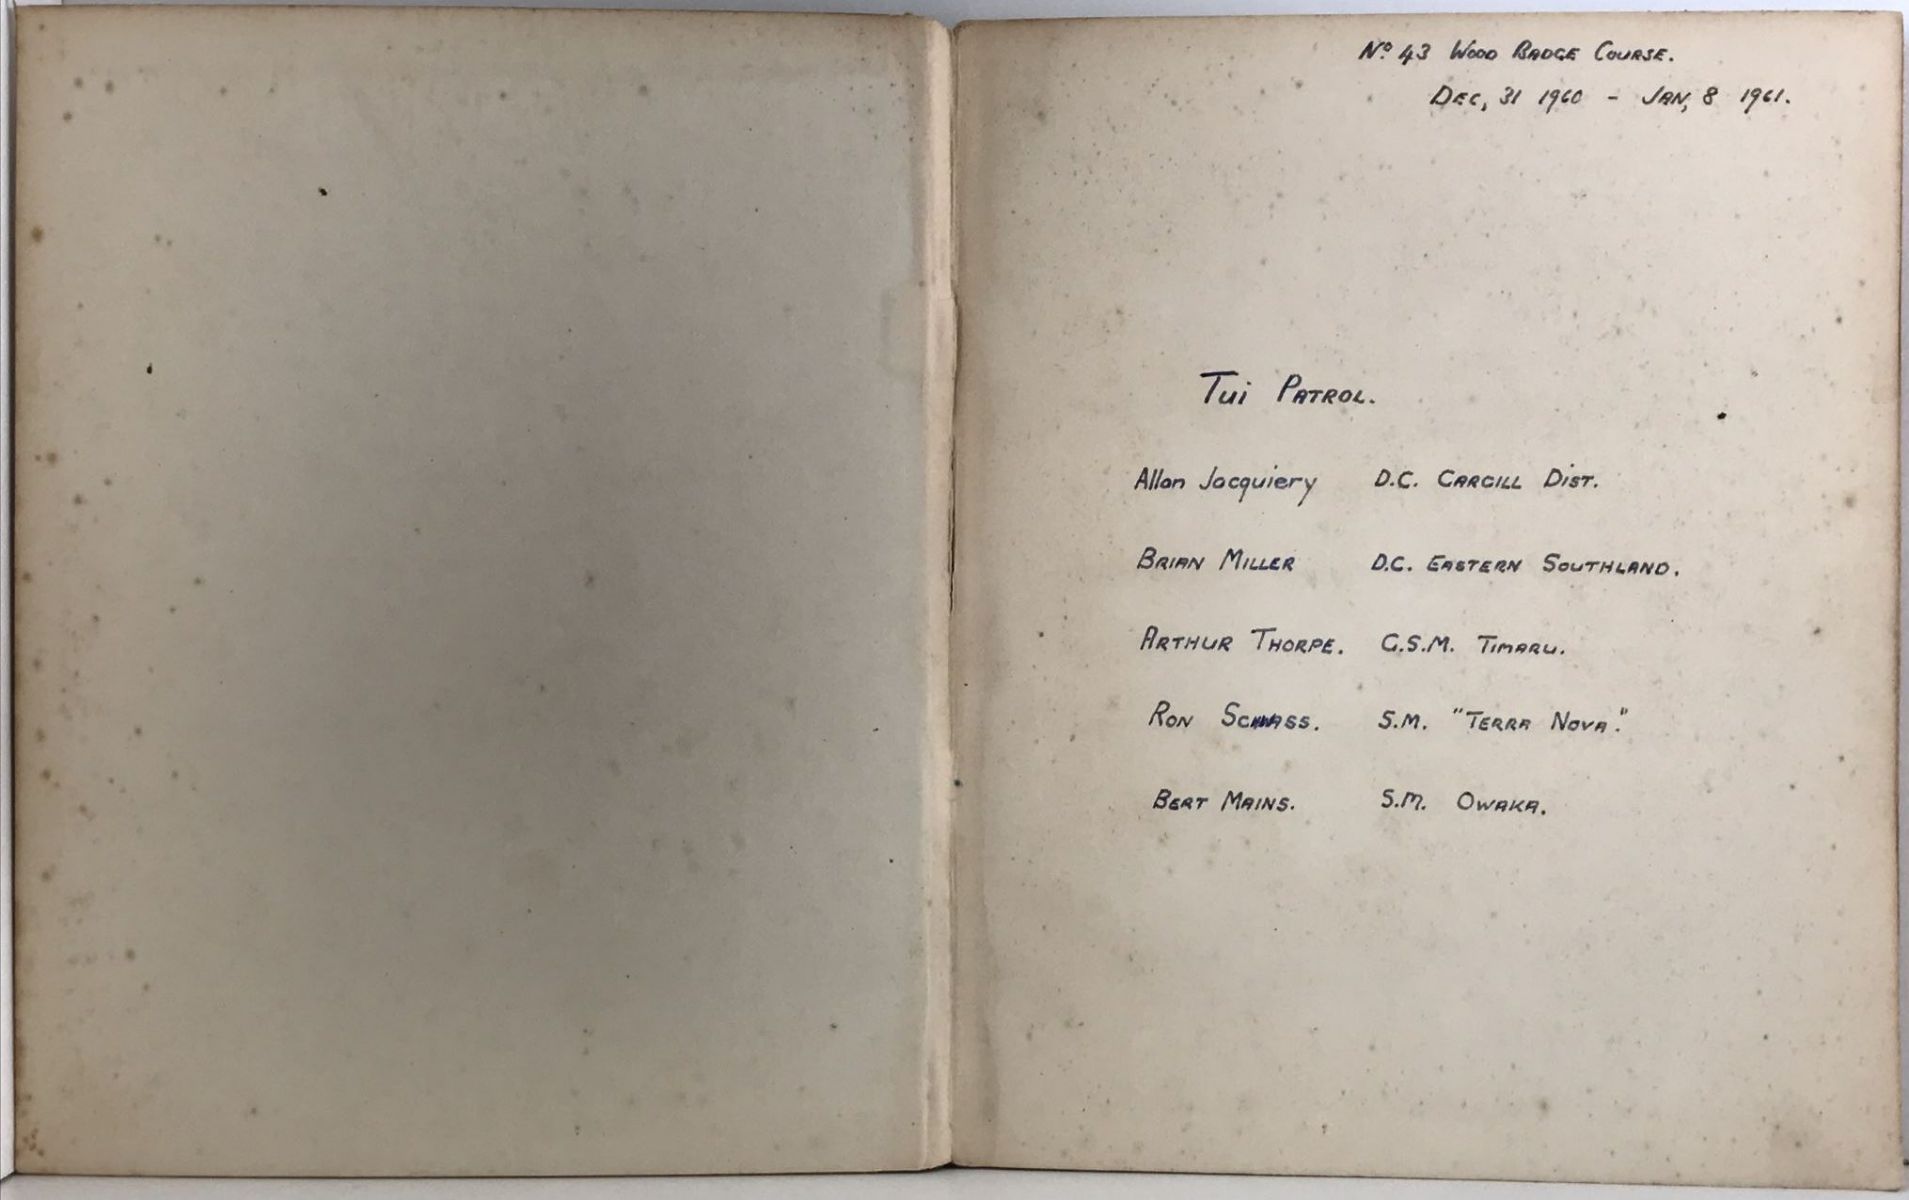 Nº 43 WOOD BADGE COURSE.
DEC, 31 1960 - JAN, 8 1961.
Tui PATROL.
Allan Jacquiery D.C. CARGILL DiST.
BRIAN MILLER D.C. EASTERN SOUTHLAND.
ARTHUR THORPE. G.S.M. TIMARU.
RON SCHWASS. S.M. "TERRA NOVA."
BERT MAINS. S.M. OWAKA.